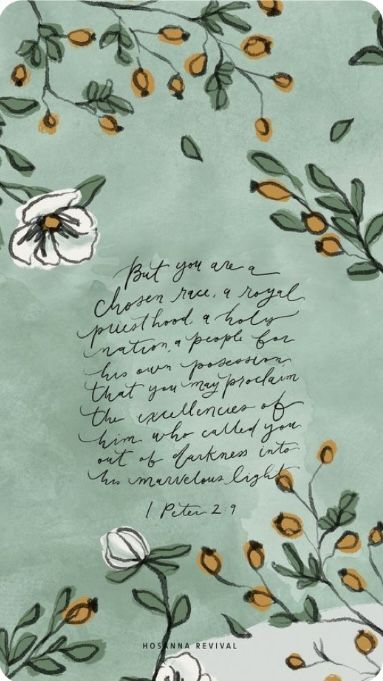 But you are a
chosen race, a royal
priesthood, a holy
nation, a people for
his own posession,
that you may proclaim
the excellencies of
him who called you
out of darkness into
his marvelous light
1 Peter 2:9
HOSANNA REVIVAL